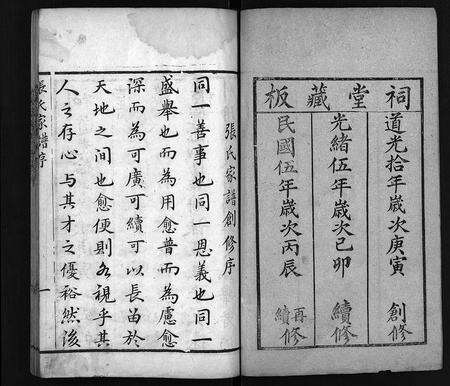 祠堂藏板
道光拾年歲次庚寅 創修
光緒伍年歲次己卯 續修
民國伍年歲次丙辰 再續修
張氏家譜創修序
同一善事也同一恩義也同一
盛舉也而為用愈普而為慮愈
深而為可廣可續可以長留於
天地之間也愈便則各視乎其
人之存心與其才之優裕然後
張氏家譜序 一